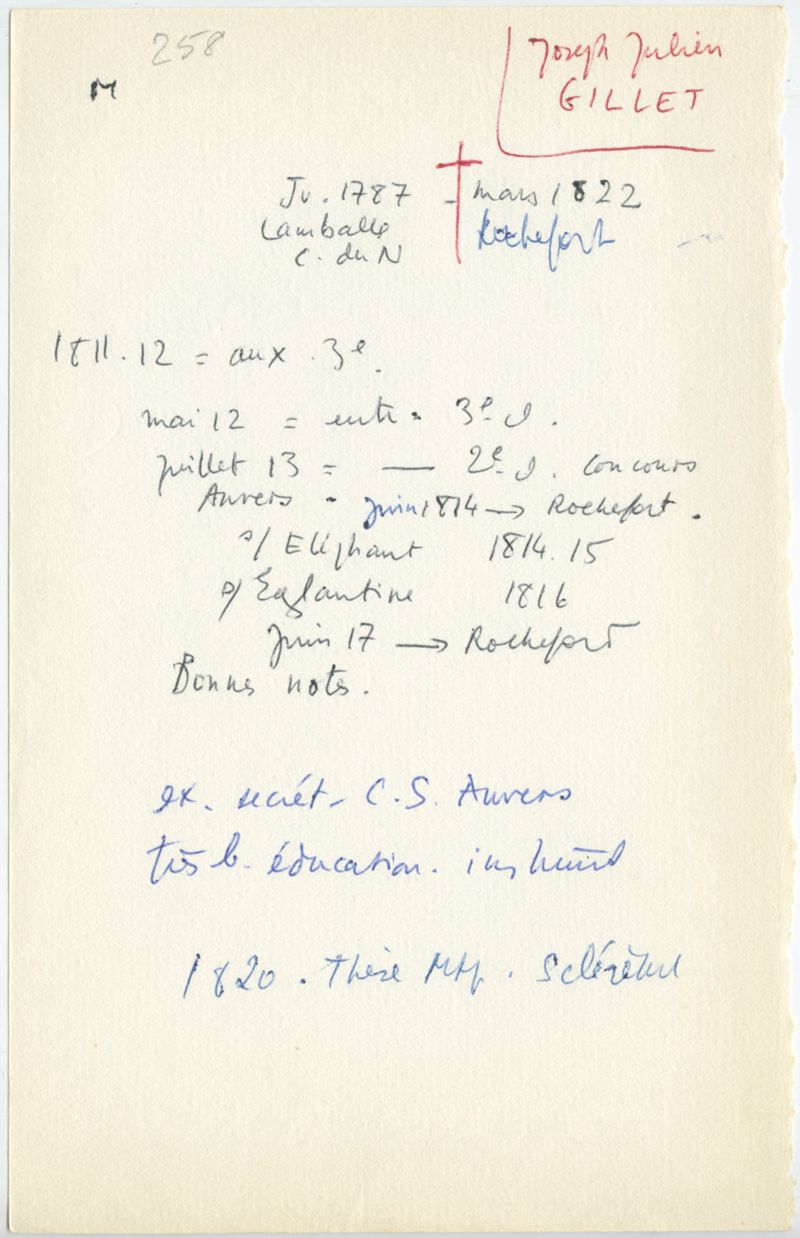 258
M
Joseph Julien
GILLET
Jv. 1787 - mars 1822
Lamballe Rochefort
C. du N
1811.12 = aux. 3e.
mai 12 = entr. 3e cl.
juillet 13 = — 2e cl. concours
Anvers - juin 1814 → Rochefort.
s/ Eléphant 1814.15
s/ Eglantine 1816
Juin 17 → Rochefort
Bonnes notes.
ex. secrét. C.S. Anvers
très b. éducation. instruit
1820. Thèse Mtp.